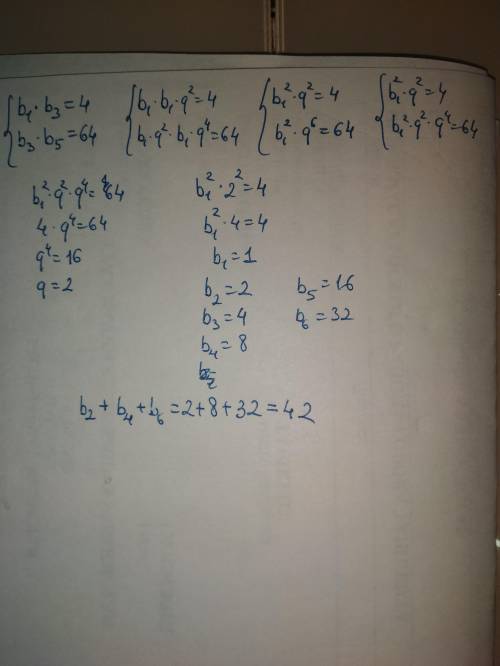 b₁ · b₃ = 4
b₃ · b₅ = 64
b₁ · b₁ · q² = 4
b₁ · q² · b₁ · q⁴ = 64
b₁² · q² = 4
b₁² · q⁶ = 64
b₁² · q² = 4
b₁² · q² · q⁴ = 64
b₁² · q² · q⁴ = 64
4 · q⁴ = 64
q⁴ = 16
q = 2
b₁² · 2² = 4
b₁² · 4 = 4
b₁ = 1
b₂ = 2
b₃ = 4
b₄ = 8
b₅ = 16
b₆ = 32
b₂ + b₄ + b₆ = 2 + 8 + 32 = 42